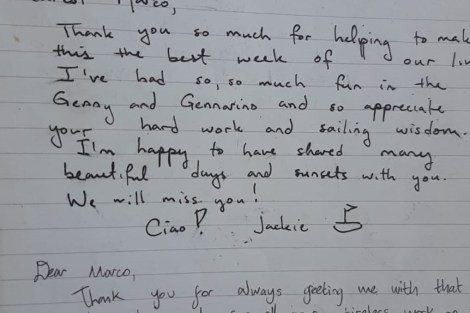 Marco,
Thank you so much for helping to make
this the best week of our
I've had so, so much fun in the
Genny and Gennarino and so appreciate
your hard work and sailing wisdom.
I'm happy to have shared many
beautiful days and sunsets with you.
We will miss you!
Ciao! Jackie
Dear Marco,
Thank you for always greeting me with that